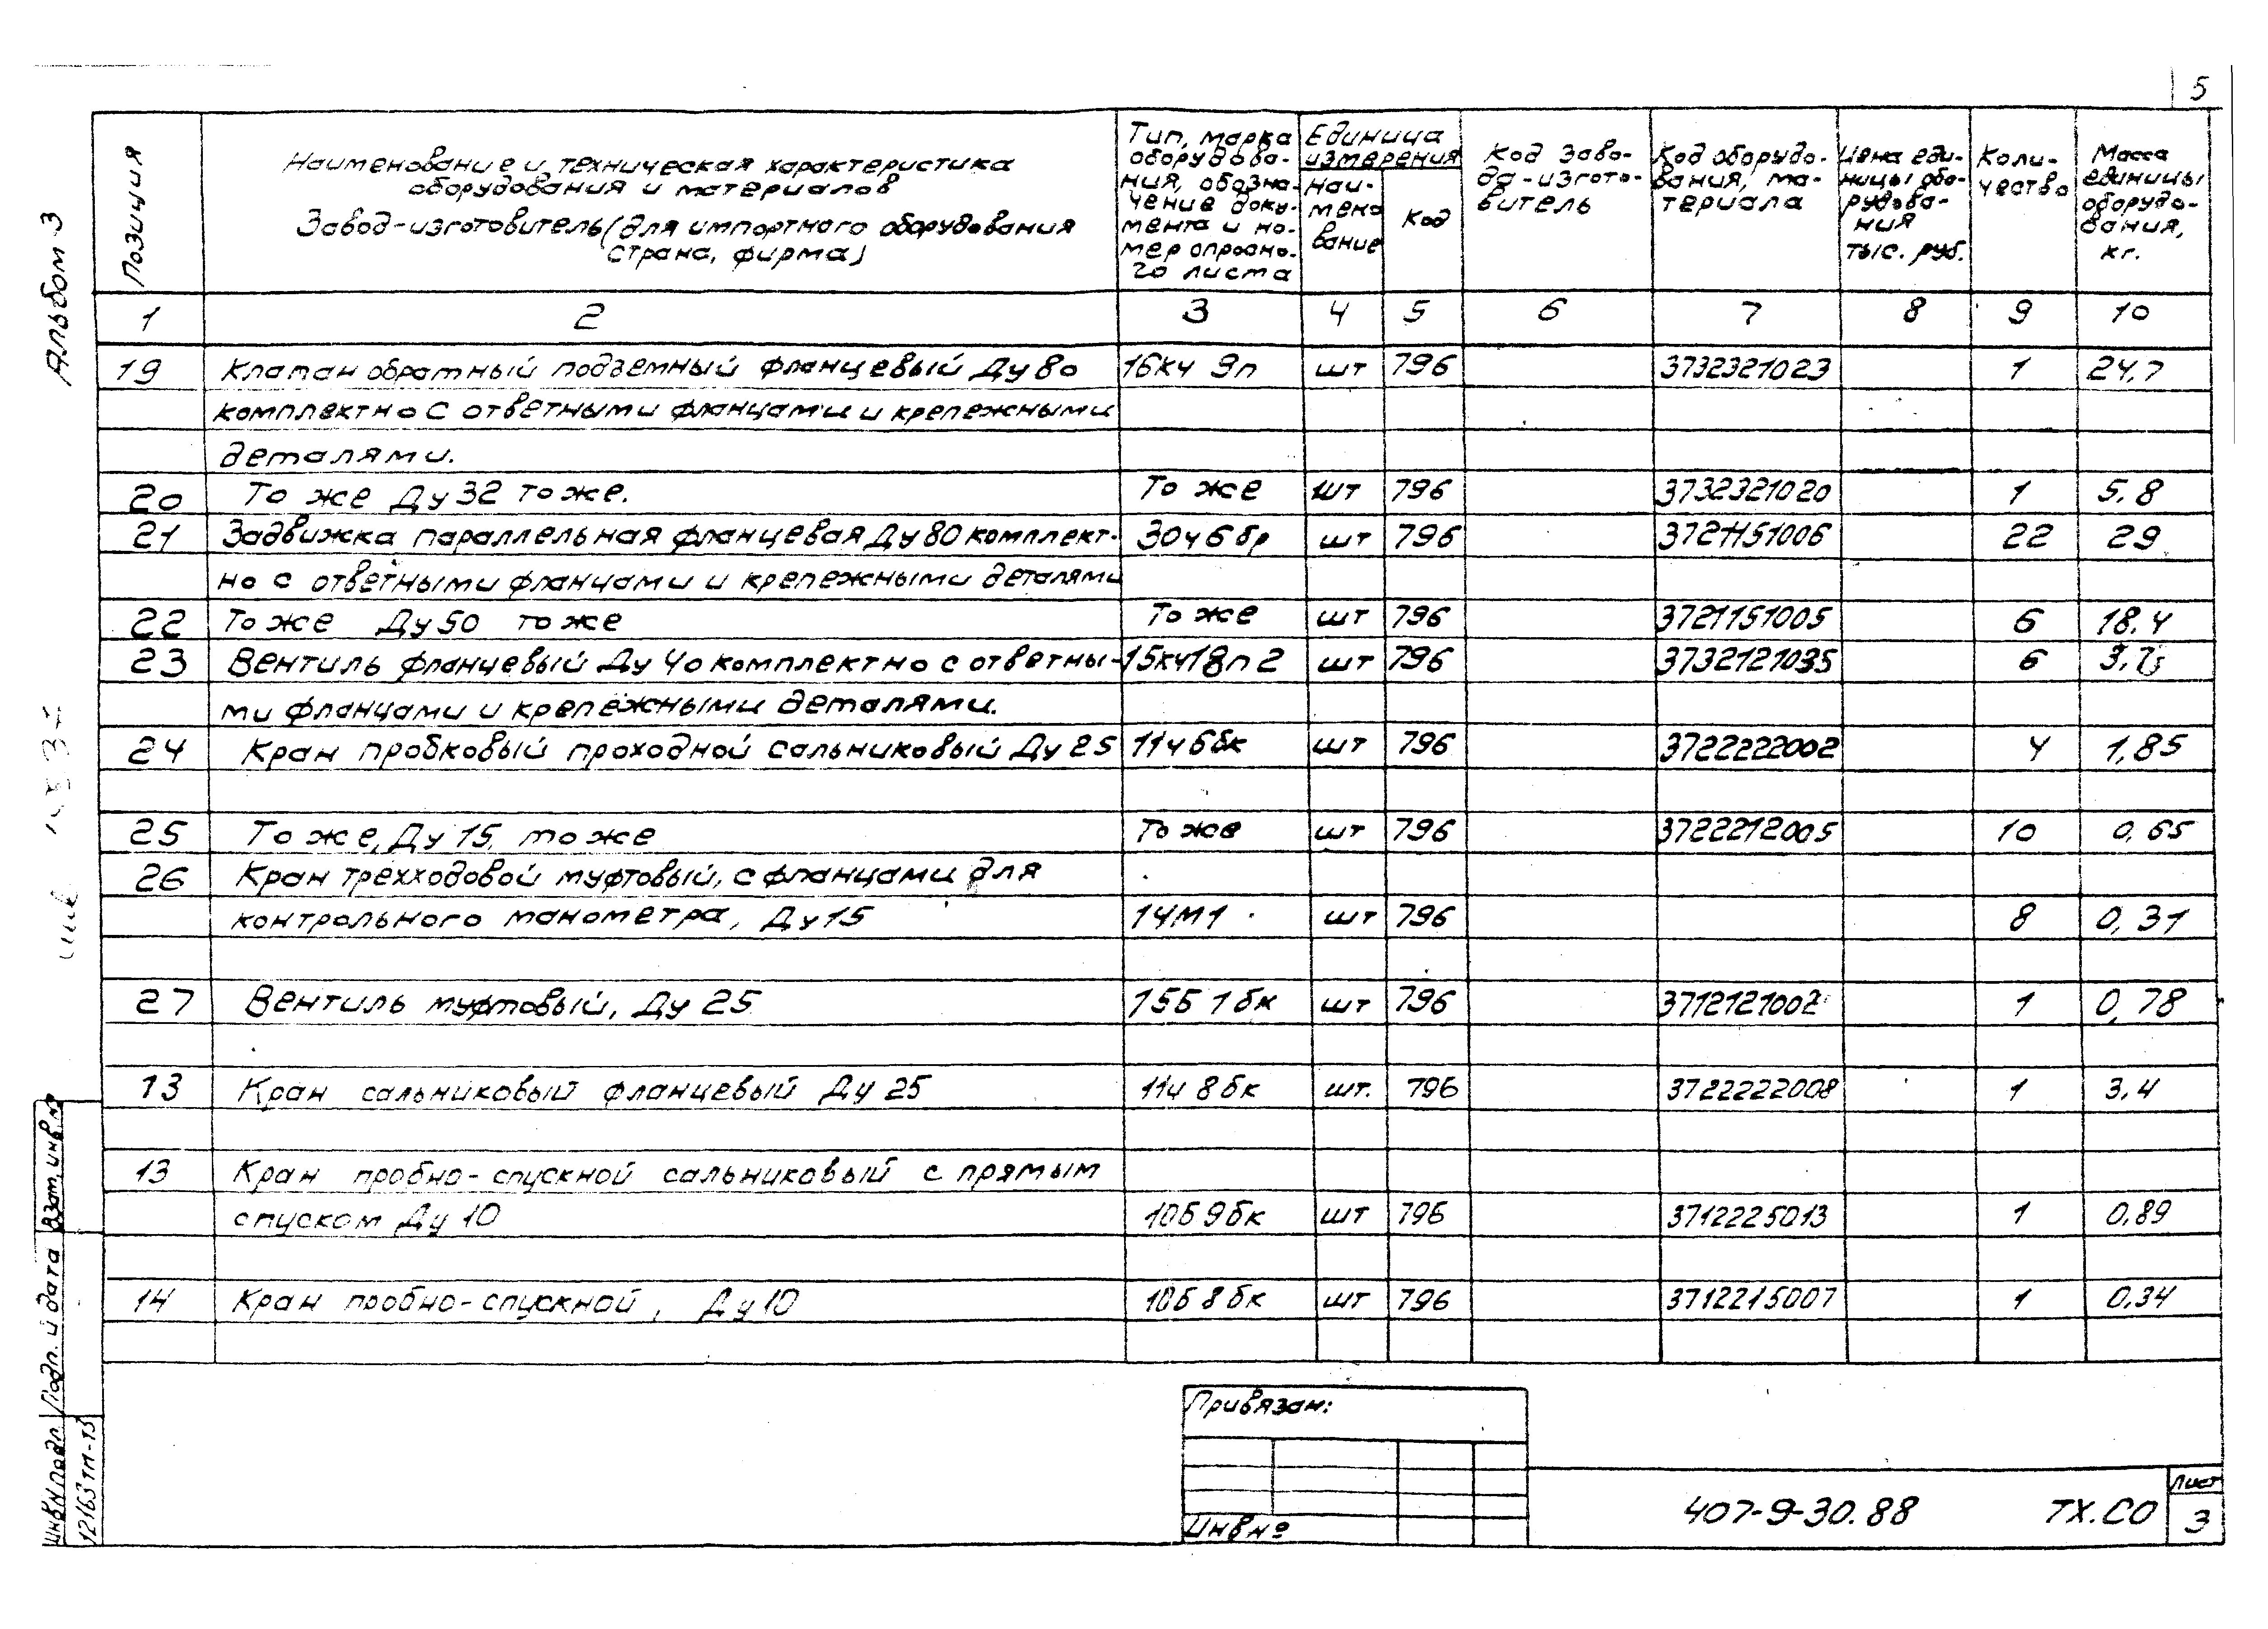 5
Альбом 3
Позиция
Наименование и техническая характеристика
оборудования и материалов
Завод-изготовитель (для импортного оборудования
страна, фирма)
Тип, марка
оборудова-
ния, обозна-
чение доку-
мента и но-
мер опросно-
го листа
Единица
измерения
наи-
мено
вание
Код
Код заво-
да-изгото-
витель
Код оборудо-
вания, ма-
териала
Цена еди-
ницы обо-
рудова-
ния
тыс. руб.
Коли-
чество
Масса
единицы
оборудо-
вания,
кг.
1 2 3 4 5 6 7 8 9 10
19 Клапан обратный подземный фланцевый Ду 80 16кч 9п шт 796 3732321023 1 24,7
комплектно с ответными фланцами и крепежными
деталями.
20 То же Ду 32 то же. То же шт 796 3732321020 1 5,8
21 Задвижка параллельная фланцевая Ду 80 комплект- 30ч6бр шт 796 3721151006 22 29
но с ответными фланцами и крепежными деталями
22 То же Ду 50 то же То же шт 796 3721151005 6 18,4
23 Вентиль фланцевый Ду 40 комплектно с ответны- 15кч18п2 шт 796 3732121035 6
ми фланцами и крепежными деталями.
24 Кран пробковый проходной сальниковый Ду 25 11ч6бк шт 796 3722222002 4 1,85
25 То же, Ду 15, то же То же шт 796 3722212005 10 0,65
26 Кран трехходовой муфтовый, с фланцами для
контрольного манометра, Ду 15 14М1 шт 796 8 0,31
27 Вентиль муфтовый, Ду 25 15Б 1бк шт 796 3712121002 1 0,78
13 Кран сальниковый фланцевый Ду 25 11ч 8бк шт. 796 3722222008 1 3,4
13 Кран пробно-спускной сальниковый с прямым
спуском Ду 10 10Б9бк шт 796 3712225013 1 0,89
14 Кран пробно-спускной, Ду 10 10Б8бк шт 796 3712215007 1 0,34
Взам. инв. №
Подп. и дата
Инв № подл.
12163тм-т3
Привязан:
Инв №
407-9-30.88 ТХ.СО
Лист
3